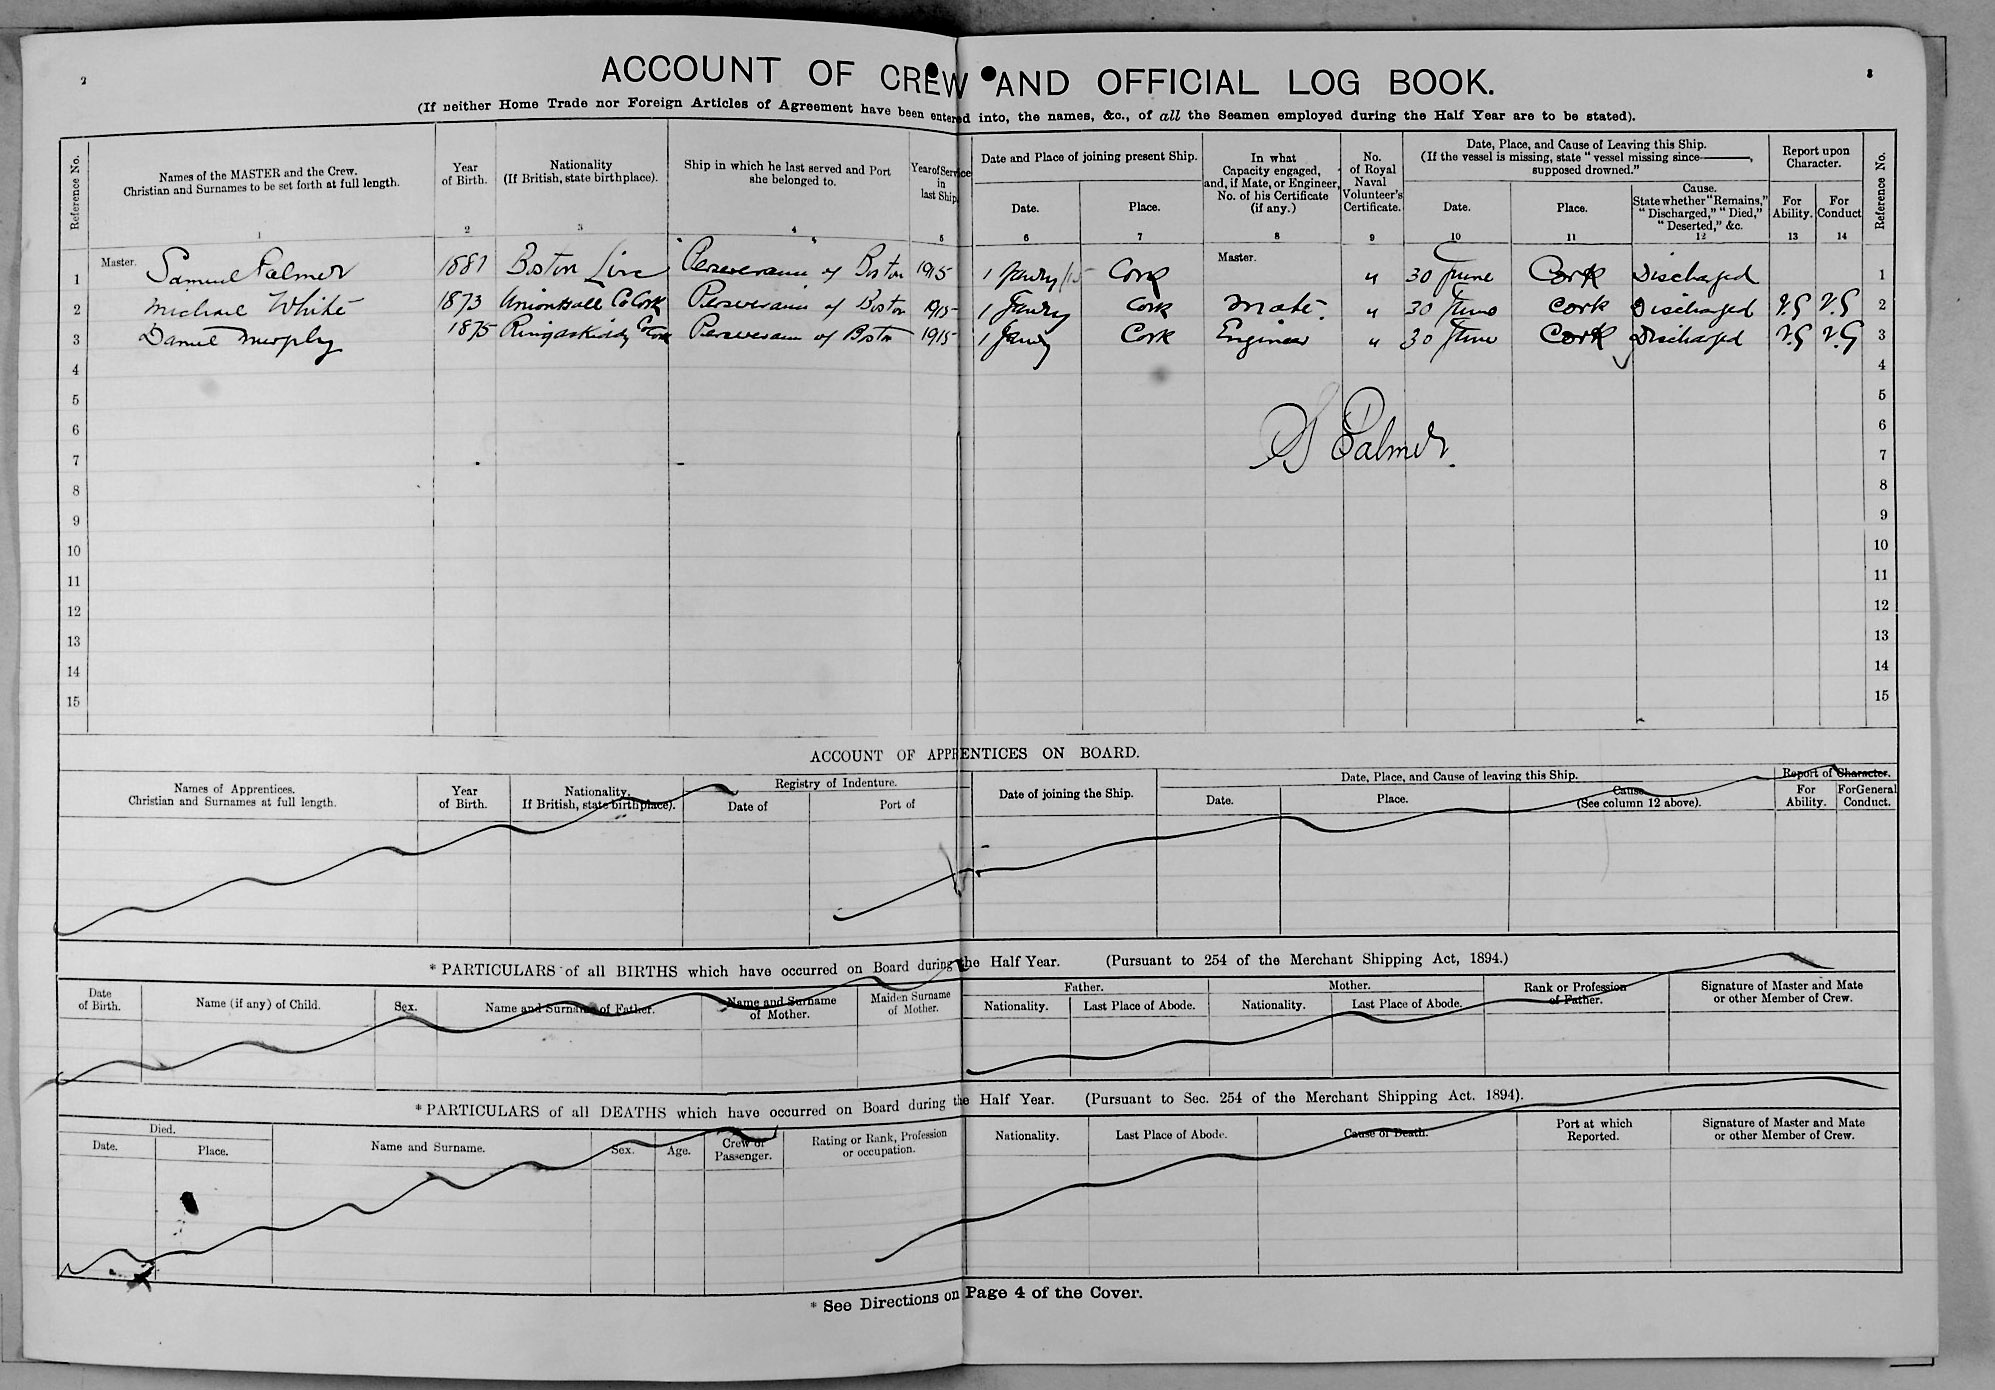 2
ACCOUNT OF CREW AND OFFICIAL LOG BOOK.
3
(If neither Home Trade nor Foreign Articles of Agreement have been entered into, the names, &c., of all the Seamen employed during the Half Year are to be stated).
Reference No.
Names of the MASTER and the Crew.
Christian and Surnames to be set forth at full length.
1
Year
of Birth.
2
Nationality
(If British, state birthplace).
3
Ship in which he last served and Port
she belonged to.
4
Year of Service
in
last Ship.
5
Date and Place of joining present Ship.
Date.
6
Place.
7
In what
Capacity engaged,
and, if Mate, or Engineer,
No. of his Certificate
(if any.)
8
No.
of Royal
Naval
Volunteer's
Certificate.
9
Date, Place, and Cause of Leaving this Ship.
(If the vessel is missing, state "vessel missing since———,
supposed drowned."
Date.
10
Place.
11
Cause.
State whether "Remains,"
"Discharged," "Died,"
"Deserted," &c.
12
Report upon
Character.
For
Ability.
13
For
Conduct
14
Reference No.
1 Master. Samuel Palmer 1881 Boston Linc Perseverance of Boston 1915 1 Janry/15 Cork Master. " 30 June Cork Discharged 1
2 Michael White 1873 Unionhall Co Cork Perseverance of Boston 1915 1 Janry Cork Mate. " 30 June Cork Discharged V.G V.G 2
3 Daniel Murphy 1875 Ringaskiddy Co Cork Perseverance of Boston 1915 1 Janry Cork Engineer " 30 June Cork Discharged V.G V.G 3
4 4
5 5
6 6
S Palmer.
7 7
8 8
9 9
10 10
11 11
12 12
13 13
14 14
15 15
ACCOUNT OF APPRENTICES ON BOARD.
Names of Apprentices.
Christian and Surnames at full length.
Year
of Birth.
Nationality.
If British, state birthplace).
Registry of Indenture.
Date of
Port of
Date of joining the Ship.
Date, Place, and Cause of leaving this Ship.
Date.
Place.
Cause
(See column 12 above).
Report of Character.
For
Ability.
For General
Conduct.
* PARTICULARS of all BIRTHS which have occurred on Board during the Half Year. (Pursuant to 254 of the Merchant Shipping Act, 1894.)
Date
of Birth.
Name (if any) of Child.
Sex.
Name and Surname of Father.
Name and Surname
of Mother.
Maiden Surname
of Mother.
Father.
Nationality.
Last Place of Abode.
Mother.
Nationality.
Last Place of Abode.
Rank or Profession
of Father.
Signature of Master and Mate
or other Member of Crew.
* PARTICULARS of all DEATHS which have occurred on Board during the Half Year. (Pursuant to Sec. 254 of the Merchant Shipping Act. 1894).
Died.
Date.
Place.
Name and Surname.
Sex.
Age.
Crew or
Passenger.
Rating or Rank, Profession
or occupation.
Nationality.
Last Place of Abode.
Cause of Death.
Port at which
Reported.
Signature of Master and Mate
or other Member of Crew.
* See Directions on Page 4 of the Cover.